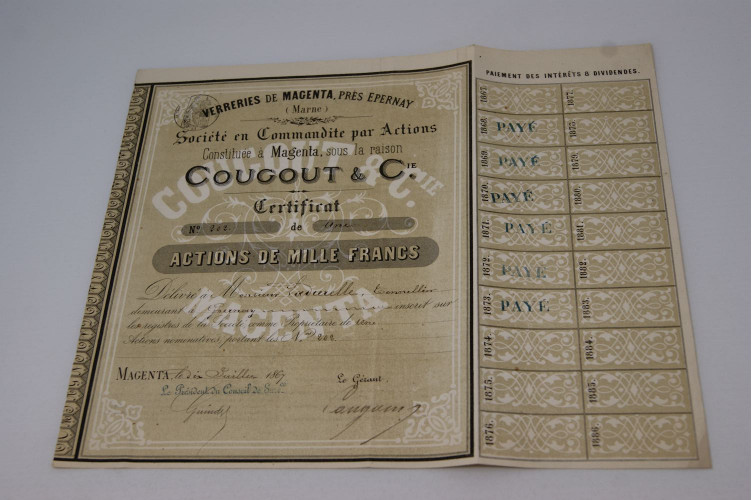 VERRERIES DE MAGENTA, PRÈS EPERNAY
(Marne)
Société en Commandite par Actions
Constituée à Magenta, sous la raison
COUGOUT & CIE
Certificat
No 202 de une
ACTIONS DE MILLE FRANCS
Délivré à Monsieur
demeurant à Epernay inscrit sur
les registres de la Société comme Propriétaire de une
Actions nominatives, portant les Nos 202
MAGENTA, le dix Juillet 1867
Le Président du Conseil de Slce Le Gérant
COUGOUT & CIE
MAGENTA
PAIEMENT DES INTÉRÊTS & DIVIDENDES.
1867. 1877.
1868. PAYÉ 1878.
1869. PAYÉ 1879.
1870. PAYÉ 1880.
1871. PAYÉ 1881.
1872. PAYÉ 1882.
1873. PAYÉ 1883.
1874. 1884.
1875. 1885.
1876. 1886.